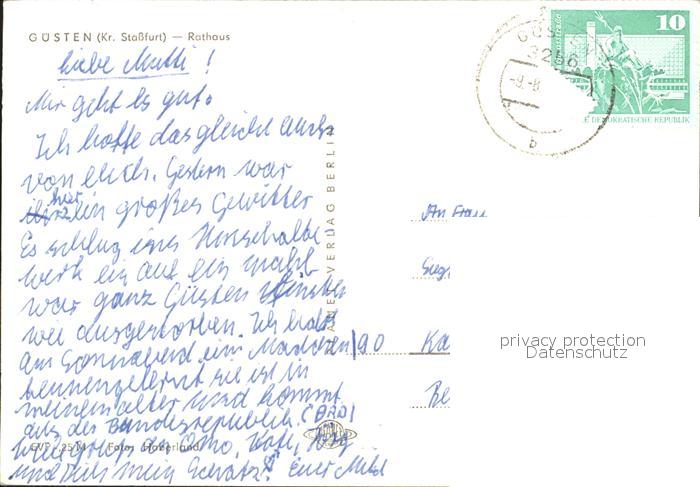 GÜSTEN (Kr. Staßfurt) — Rathaus
liebe Mutti!
Mir geht es gut.
Ich hoffe das gleiche auch
von euch. Gestern war
hier ein großes Gewitter
Es schlug ins Umschalte
werk ein auf ein mahl
war ganz Güsten finster
wie ausgestorben. Ich habe
am Sonnabend ein Mädchen
kennengelernt sie ist in
meinem alter und kommt
aus der Bundesrepublik. (BRD)
Oma,
und Teils mein Schatz. Euer
25M Foto: Haberland
VERLAG BERLIN
GÜSTEN
3256
-9.-8
b
10
DEMOKRATISCHE REPUBLIK
An Frau
90
Ka
privacy protection
Datenschutz